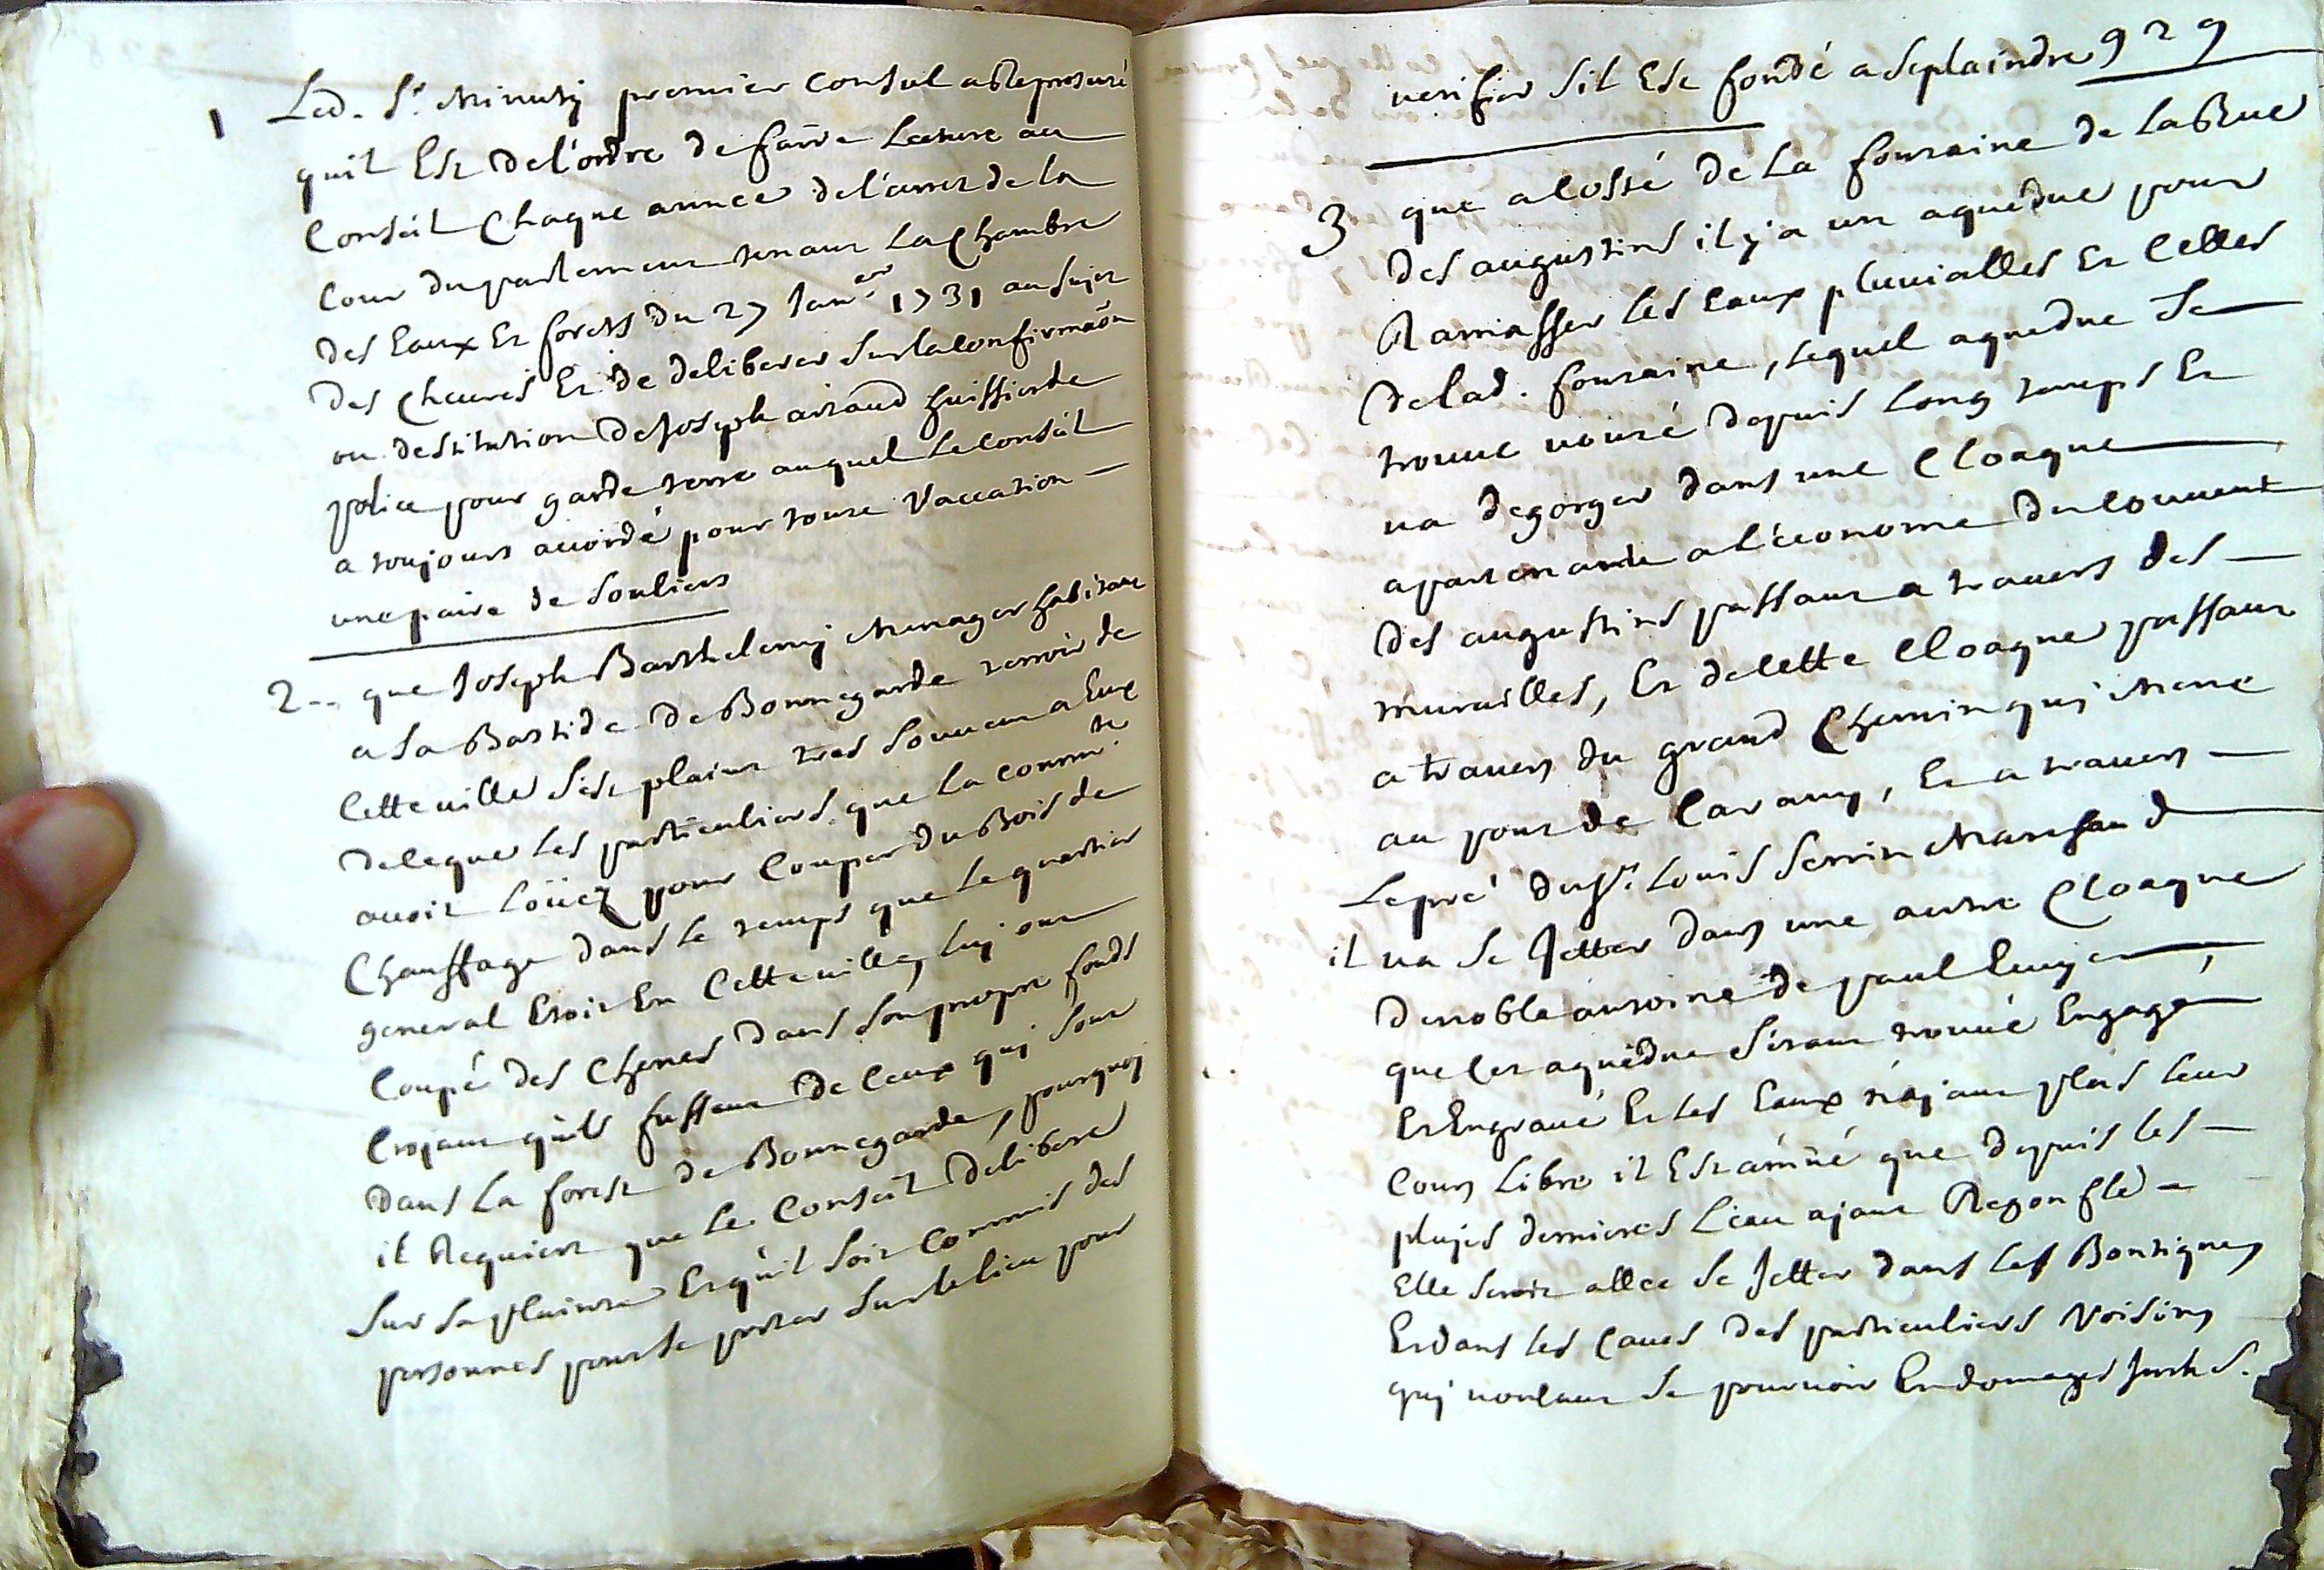 1 Led. Sr. Minuty premier Consul a Representé
quil Est de l'ordre de faire Lecture au
Conseil Chaque année de l'arrest de la
Cour du parlement tenant La Chambre
des Eaux Et forets du 27 Janver 1731 au sujet
des Cheures Et de deliberer sur la confirmaôn
ou destitution de Joseph airaud huissier de
police pour garde terre auquel Le Conseil
a toujours accordé pour toute Vaccation
une paire de souliers
2 -- que Joseph Barthelemy Menager habitant
a La Bastide de Bonnegarde terroir de
Cette ville s'est plaint tres souvent a Eux
de ce que les particuliers que La commte.
avoit Loüez pour Couper du Bois de
Chauffage dans le temps que le quartier
general Etoit En Cette ville, luj ont
Coupé des Chenes dans son propre fonds
Croyant qu'ils fussent de Ceux quj sont
Dans La forest de Bonnegarde, pourquoj
il Requiert que Le Conseil delibere
sur sa plainte Et qu'il soit Commis des
personnes pour se porter sur le lieu pour
929
verifier sil Est fondé a se plaindre
3 que a lossé de La fontaine de La Rue
des augustins il y'a un aqueduc pour
Ramasser les Eaux pluvialles Et Celles
de lad. fontaine, lequel aqueduc se
trouve vouté depuis long temps Et
va degorger dans une Cloaque
apartenante a l'économe du Couvent
des augustins passant a travers des
murailles, Et de Cette Cloaque passant
a travers du grand Chemin quj Mene
au pont de Caramy, Et a travers
Le pré du Sr. Louis Serrin Marchand
il va se Jetter dans une autre Cloaque
de noble antoine de paul
que Cet aqueduc s'étant trouvé Engagé
Et Engravé Et les Eaux n'ajant plus leur
Cours Libre il Est arrivé que depuis les
plujes dernieres L'eau ajant Regonflé
Elle seroit allée se Jetter dans les Boutiques
Et dans les Caves des particuliers Voisins
quj veulent se pourvoir En domages